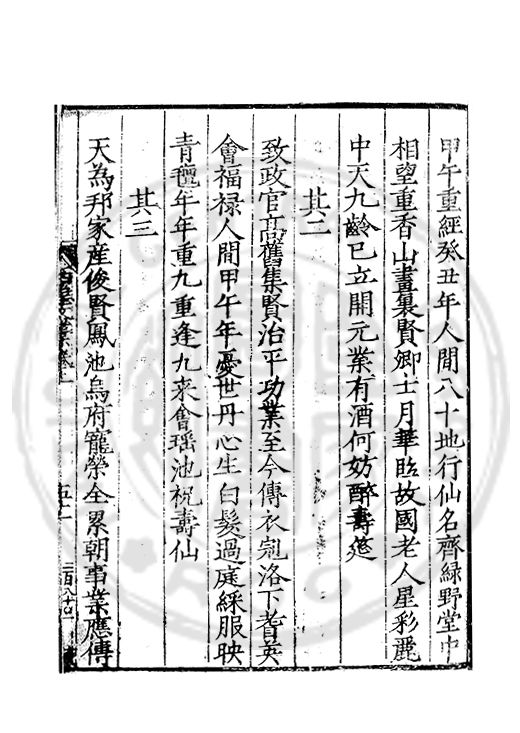 甲午重經癸丑年人間八十地行仙名齊綠野堂中
相望重香山畫裏賢卿士月華臨故國老人星彩麗
中天九齡已立開元業有酒何妨醉壽筵
其二
致政官高舊集賢治平功業至今傳衣冠洛下耆英
會福祿人間甲午年憂世丹心生白髮過庭綵服映
青氊年年重九重逢九来會瑶池祝壽仙
其三
天為邦家産俊賢鳳池烏府寵榮全累朝事業應傳